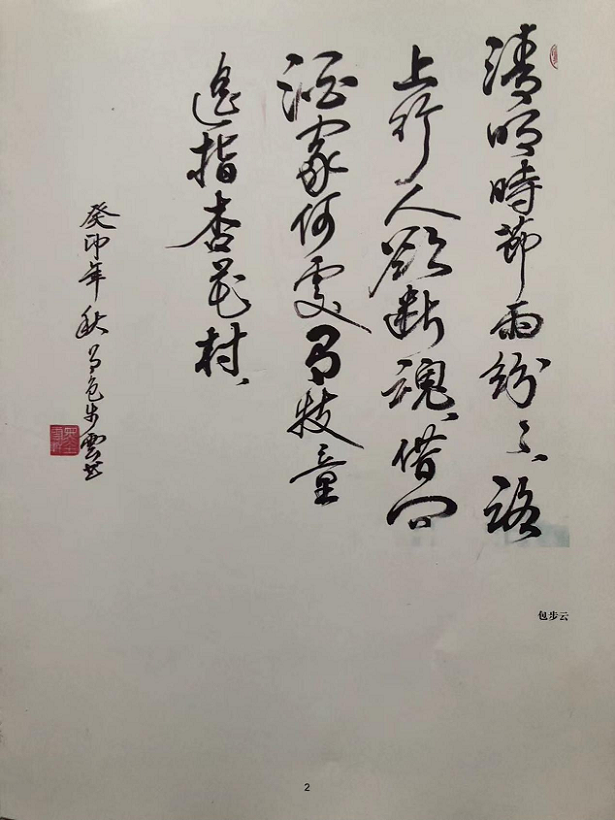 清明時節雨紛々路
上行人欲断魂借问
酒家何處有牧童
遥指杏花村
癸卯年秋月包步雲书
包步云
2